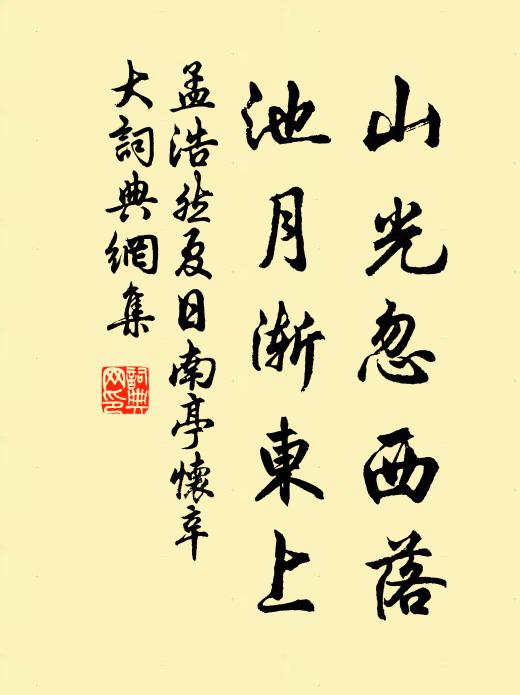 山光忽西落
池月漸東上
孟浩然夏日南亭懷辛
大詞典網集
詞典網印